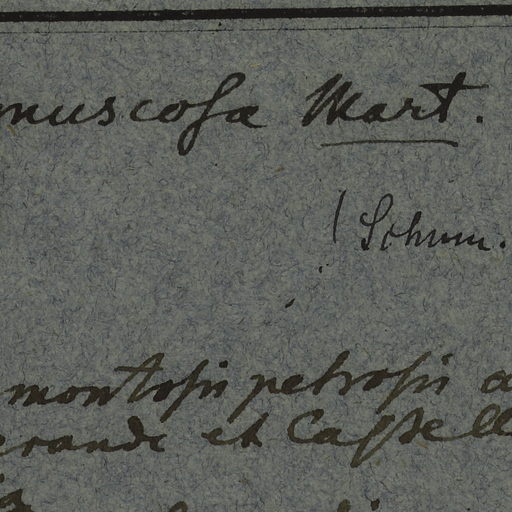 muscosa Mart.
! Schum.
montosis petrosis
et Castell